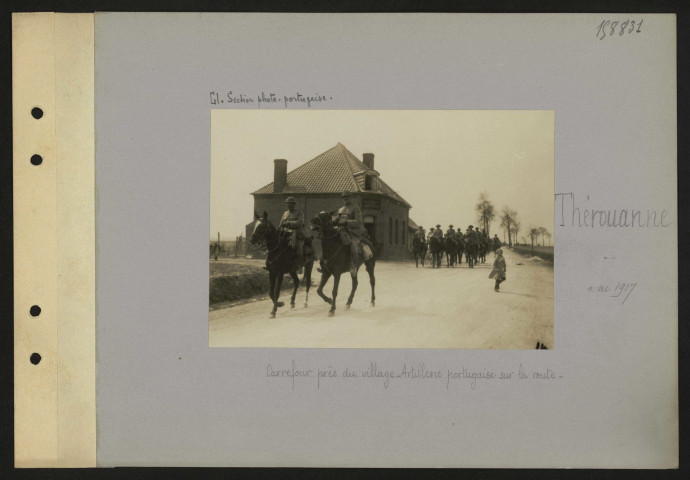 158831
Cl. Section photo. portugaise.
Thérouanne
mai 1917
Carrefour près du village. Artillerie portugaise sur la route.